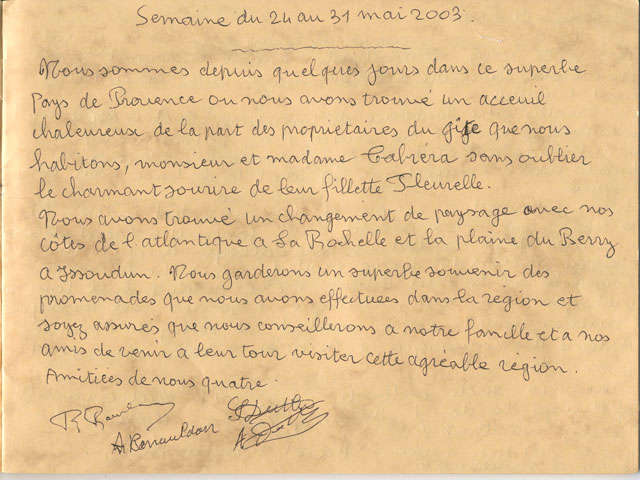 Semaine du 24 au 31 mai 2003.
Nous sommes depuis quelques jours dans ce superbe
Pays de Provence ou nous avons trouvé un acceuil
chaleureux de la part des propriétaires du gîte que nous
habitons, monsieur et madame Cabréra sans oublier
le charmant sourire de leur fillette Fleurelle.
Nous avons trouvé un changement de paysage avec nos
côtes de l'atlantique a La Rochelle et la plaine du Berry
a Issoudun. Nous garderons un superbe souvenir des
promenades que nous avons effectuées dans la région et
soyez assurés que nous conseillerons a notre famille et a nos
amis de venir a leur tour visiter cette agréable région.
Amitiées de nous quatre.